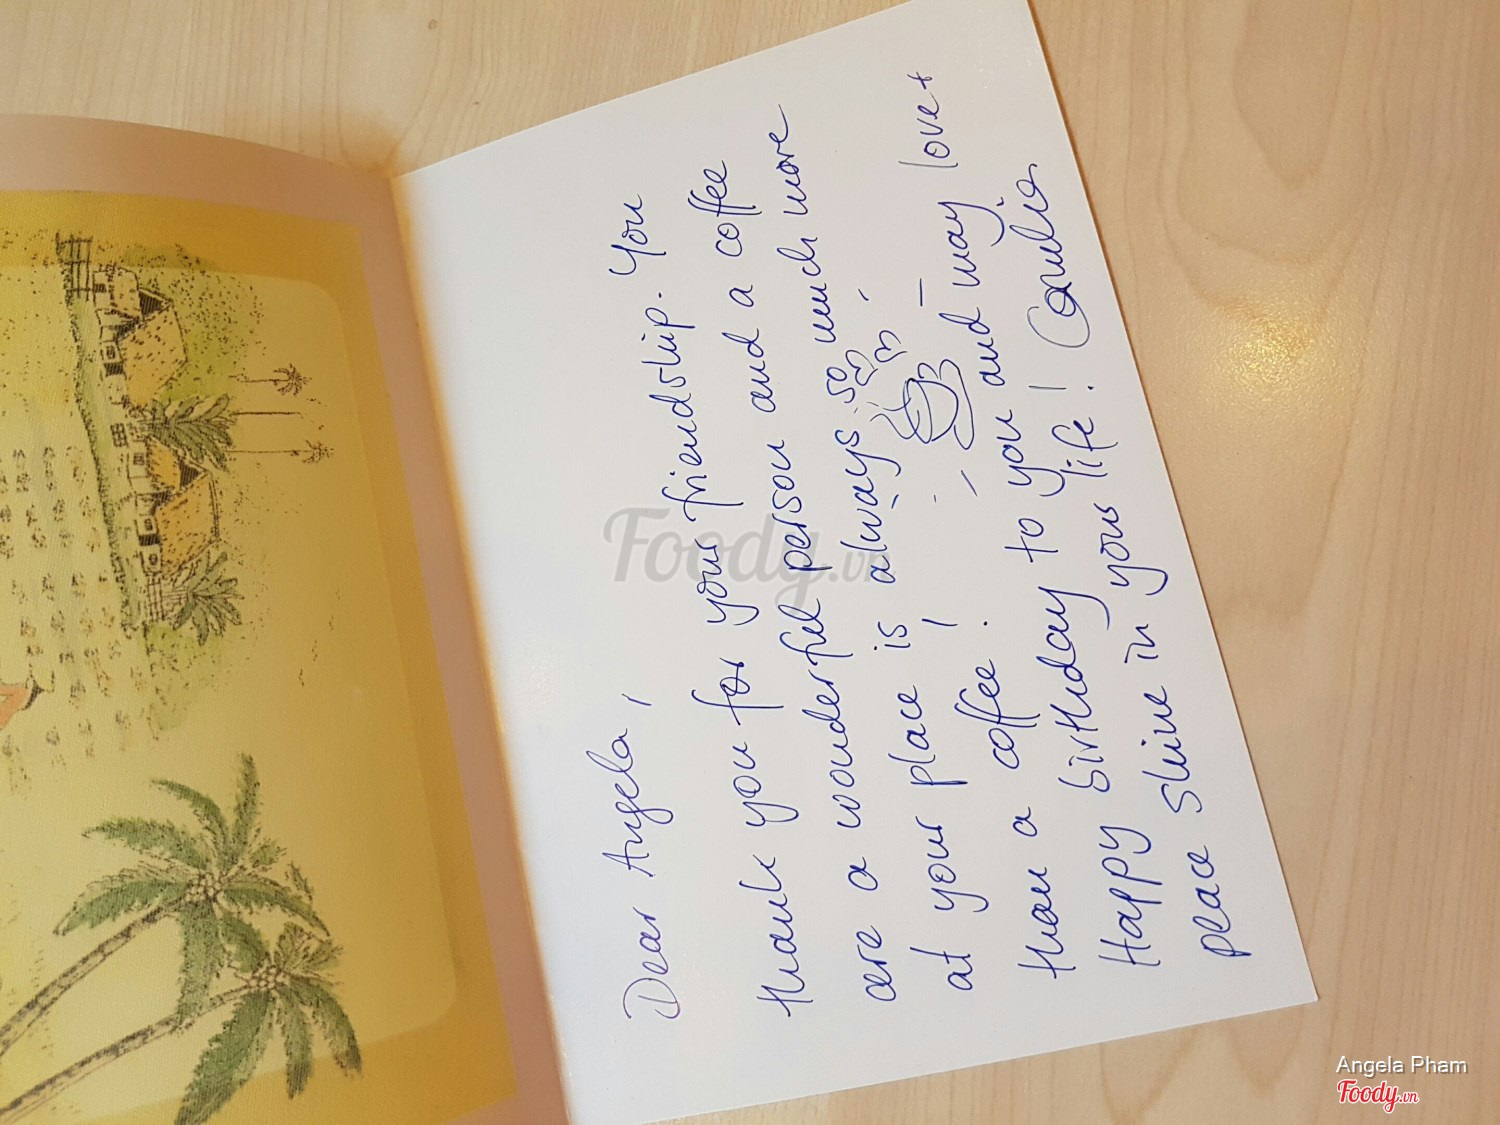 Dear Angela,
thank you for your friendship. You
are a wonderful person and a coffee
at your place is always so much more
than a coffee!
Happy birthday to you and may love +
peace shine in your life!
Foody.vn
Angela Pham
Foody.vn